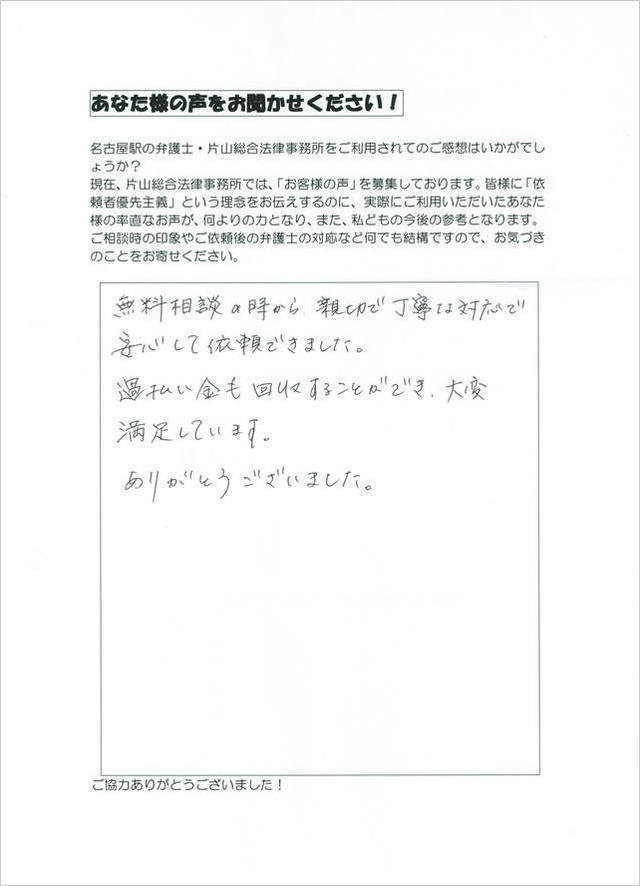 あなた様の声をお聞かせください！
名古屋駅の弁護士・片山総合法律事務所をご利用されてのご感想はいかがでし
ょうか？
現在、片山総合法律事務所では、「お客様の声」を募集しております。皆様に「依
頼者優先主義」という理念をお伝えするのに、実際にご利用いただいたあなた
様の率直なお声が、何よりの力となり、また、私どもの今後の参考となります。
ご相談時の印象やご依頼後の弁護士の対応など何でも結構ですので、お気づき
のことをお寄せください。
無料相談の時から、親切で丁寧な対応で
安心して依頼できました。
過払い金も回収することができ、大変
満足しています。
ありがとうございました。
ご協力ありがとうございました！